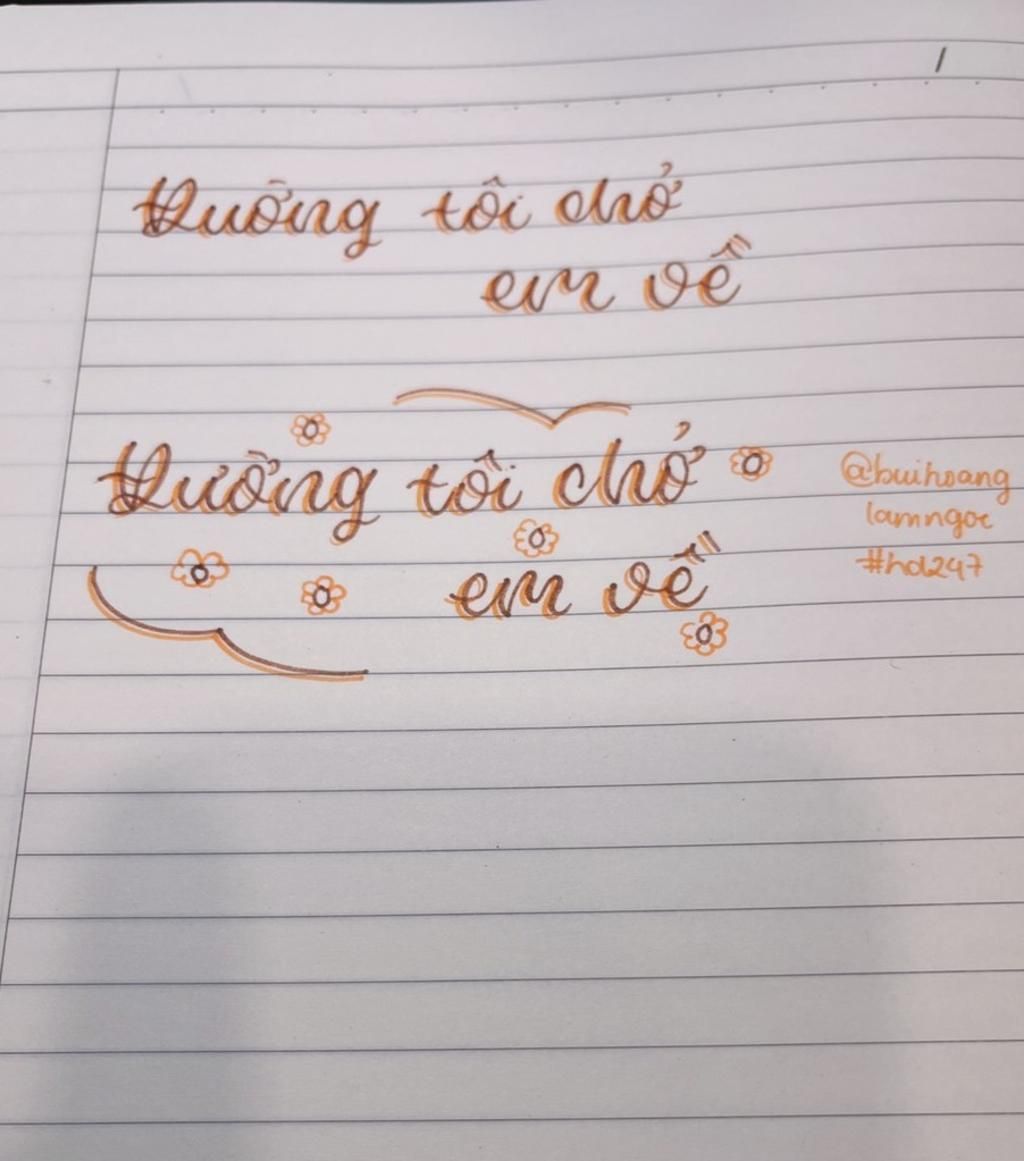 Đường tôi chở
em về
Đường tôi chở
em về
@buihoang
lamngoc
#hd247